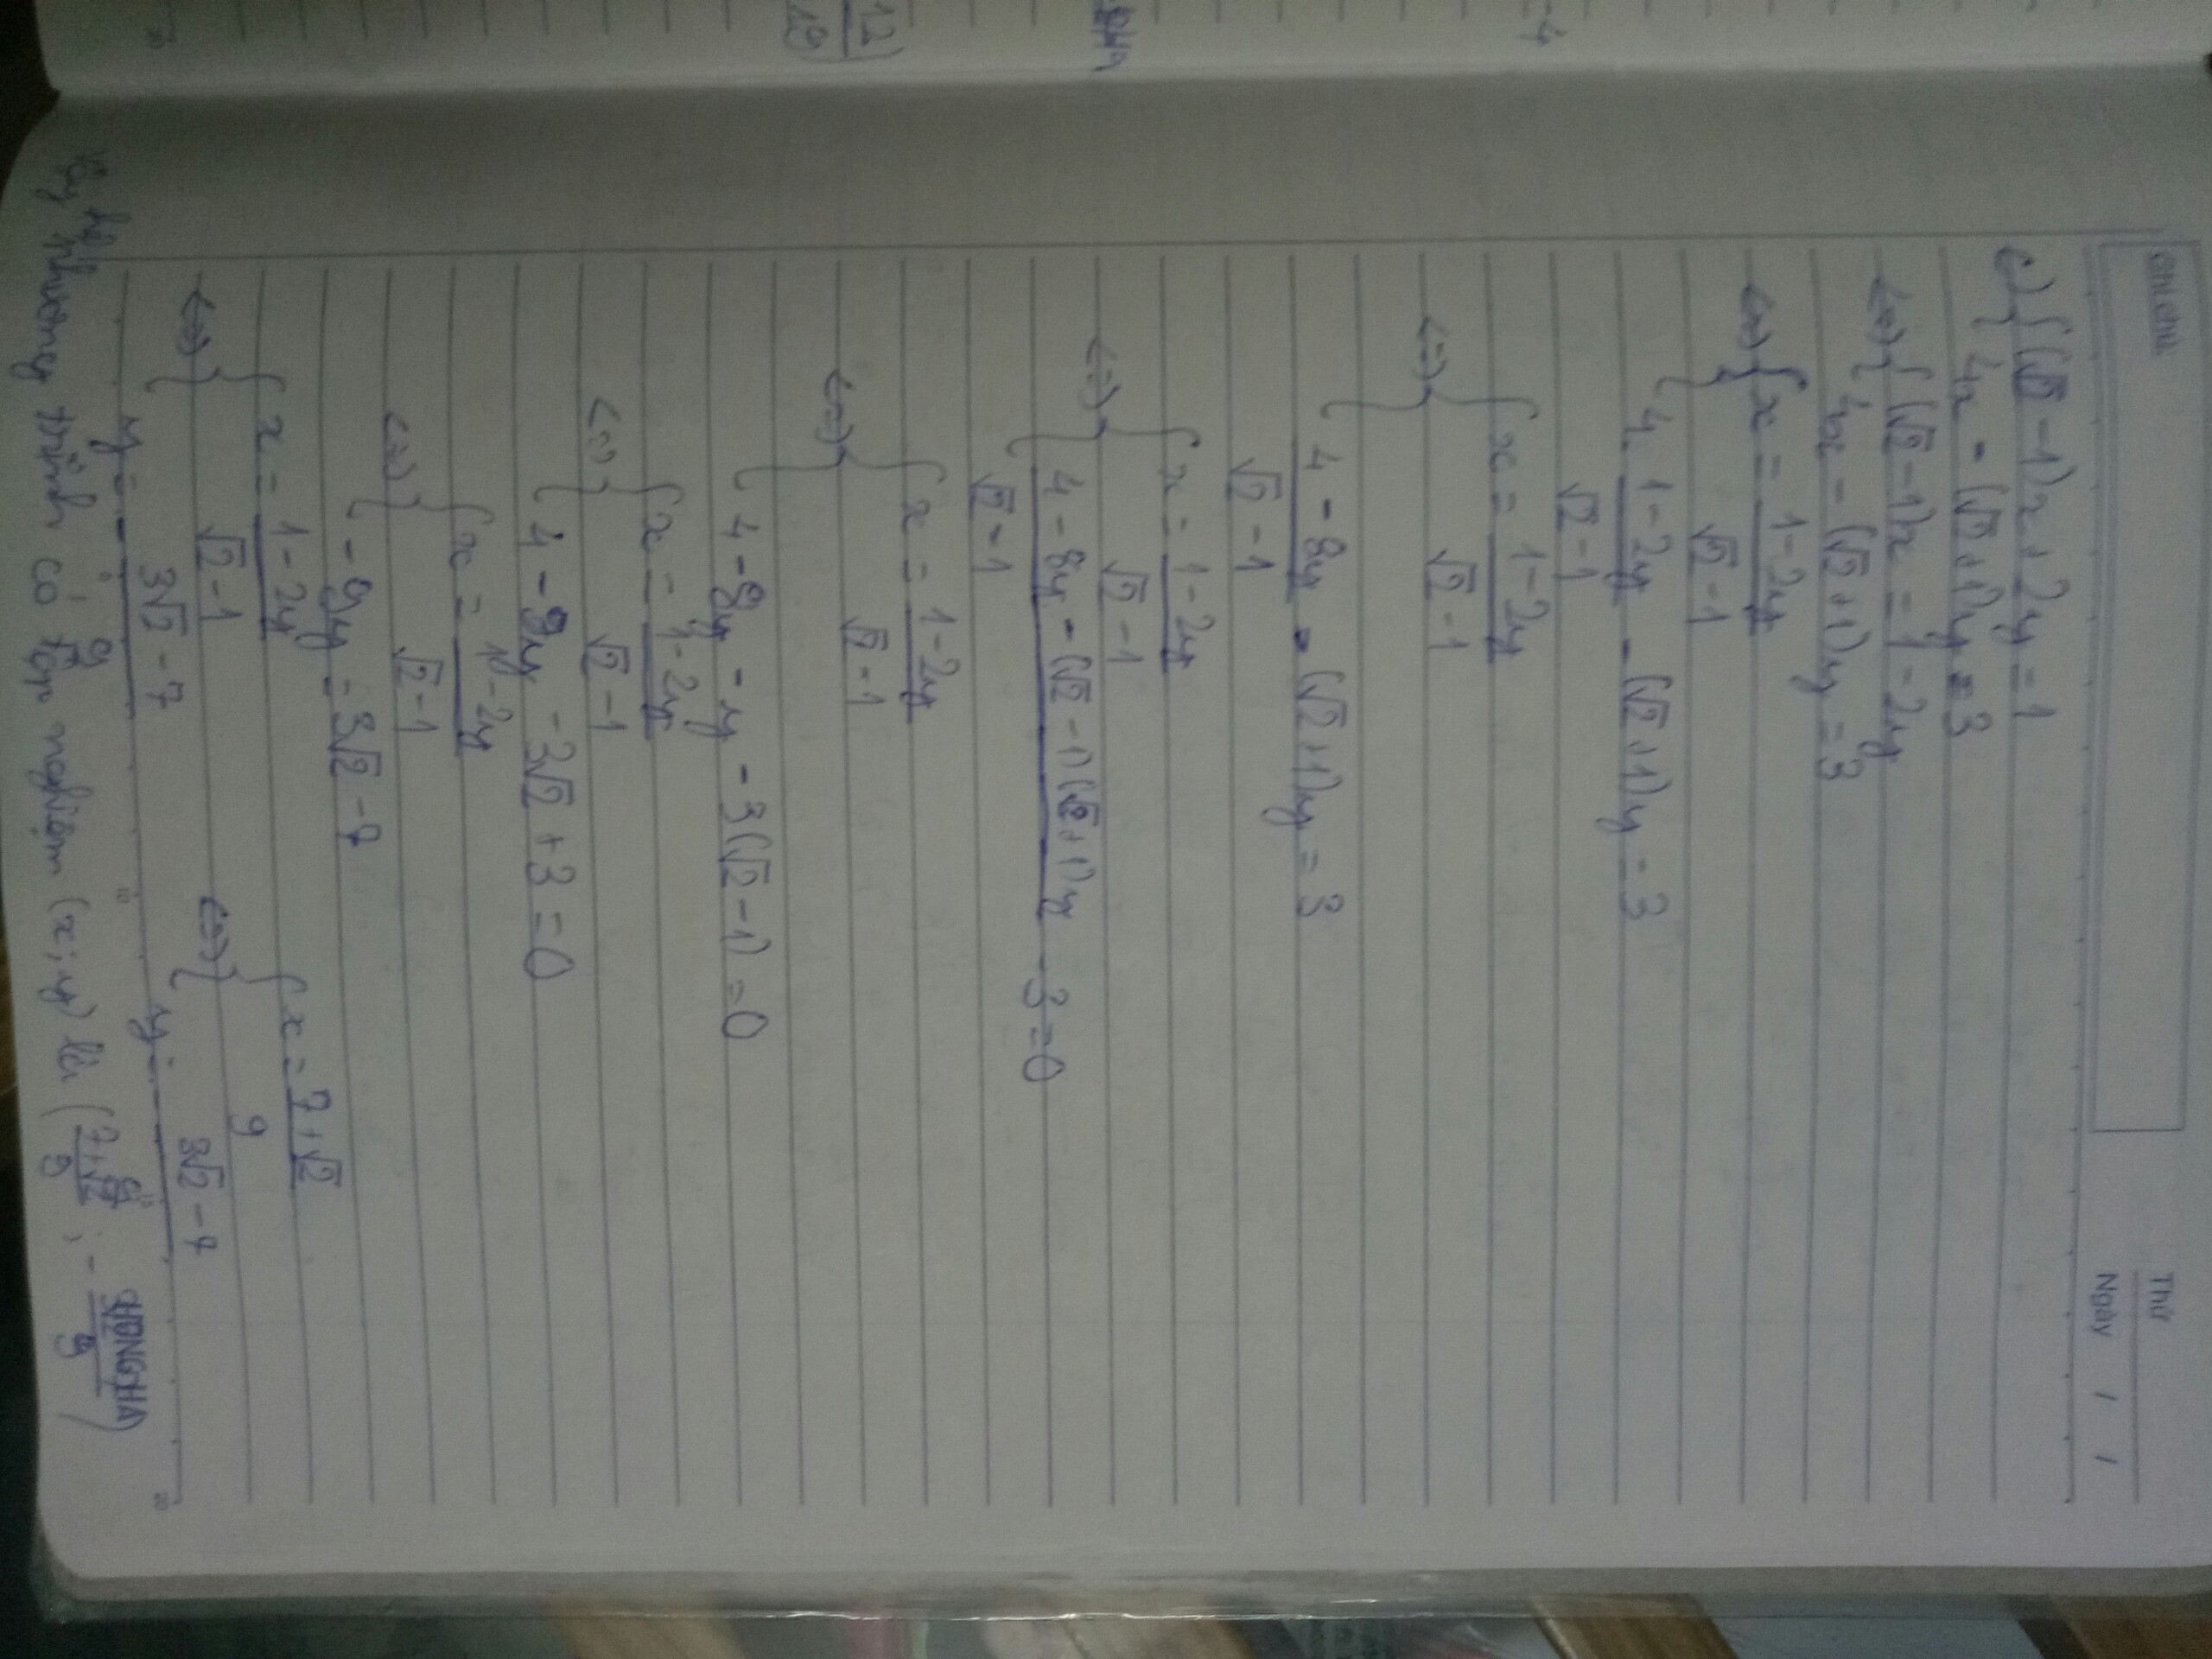 Ghi chú:
Thứ
Ngày / /
c) { (√2 - 1)x + 2y = 1
4x - (√2 + 1)y = 3
<=> { (√2 - 1)x = 1 - 2y
4x - (√2 + 1)y = 3
<=> { x = (1 - 2y)/(√2 - 1)
4 (1 - 2y)/(√2 - 1) - (√2 + 1)y = 3
<=> { x = (1 - 2y)/(√2 - 1)
(4 - 8y)/(√2 - 1) - (√2 + 1)y = 3
<=> { x = (1 - 2y)/(√2 - 1)
(4 - 8y - (√2 - 1)(√2 + 1)y)/(√2 - 1) - 3 = 0
<=> { x = (1 - 2y)/(√2 - 1)
4 - 8y - y - 3(√2 - 1) = 0
<=> { x = (1 - 2y)/(√2 - 1)
4 - 9y - 3√2 + 3 = 0
<=> { x = (1 - 2y)/(√2 - 1)
- 9y = 3√2 - 7
<=> { x = (1 - 2y)/(√2 - 1) <=> { x = (7 + √2)/9
y = - (3√2 - 7)/9 y = - (3√2 - 7)
Vậy hệ phương trình có nghiệm (x ; y) là
HONG HA
12